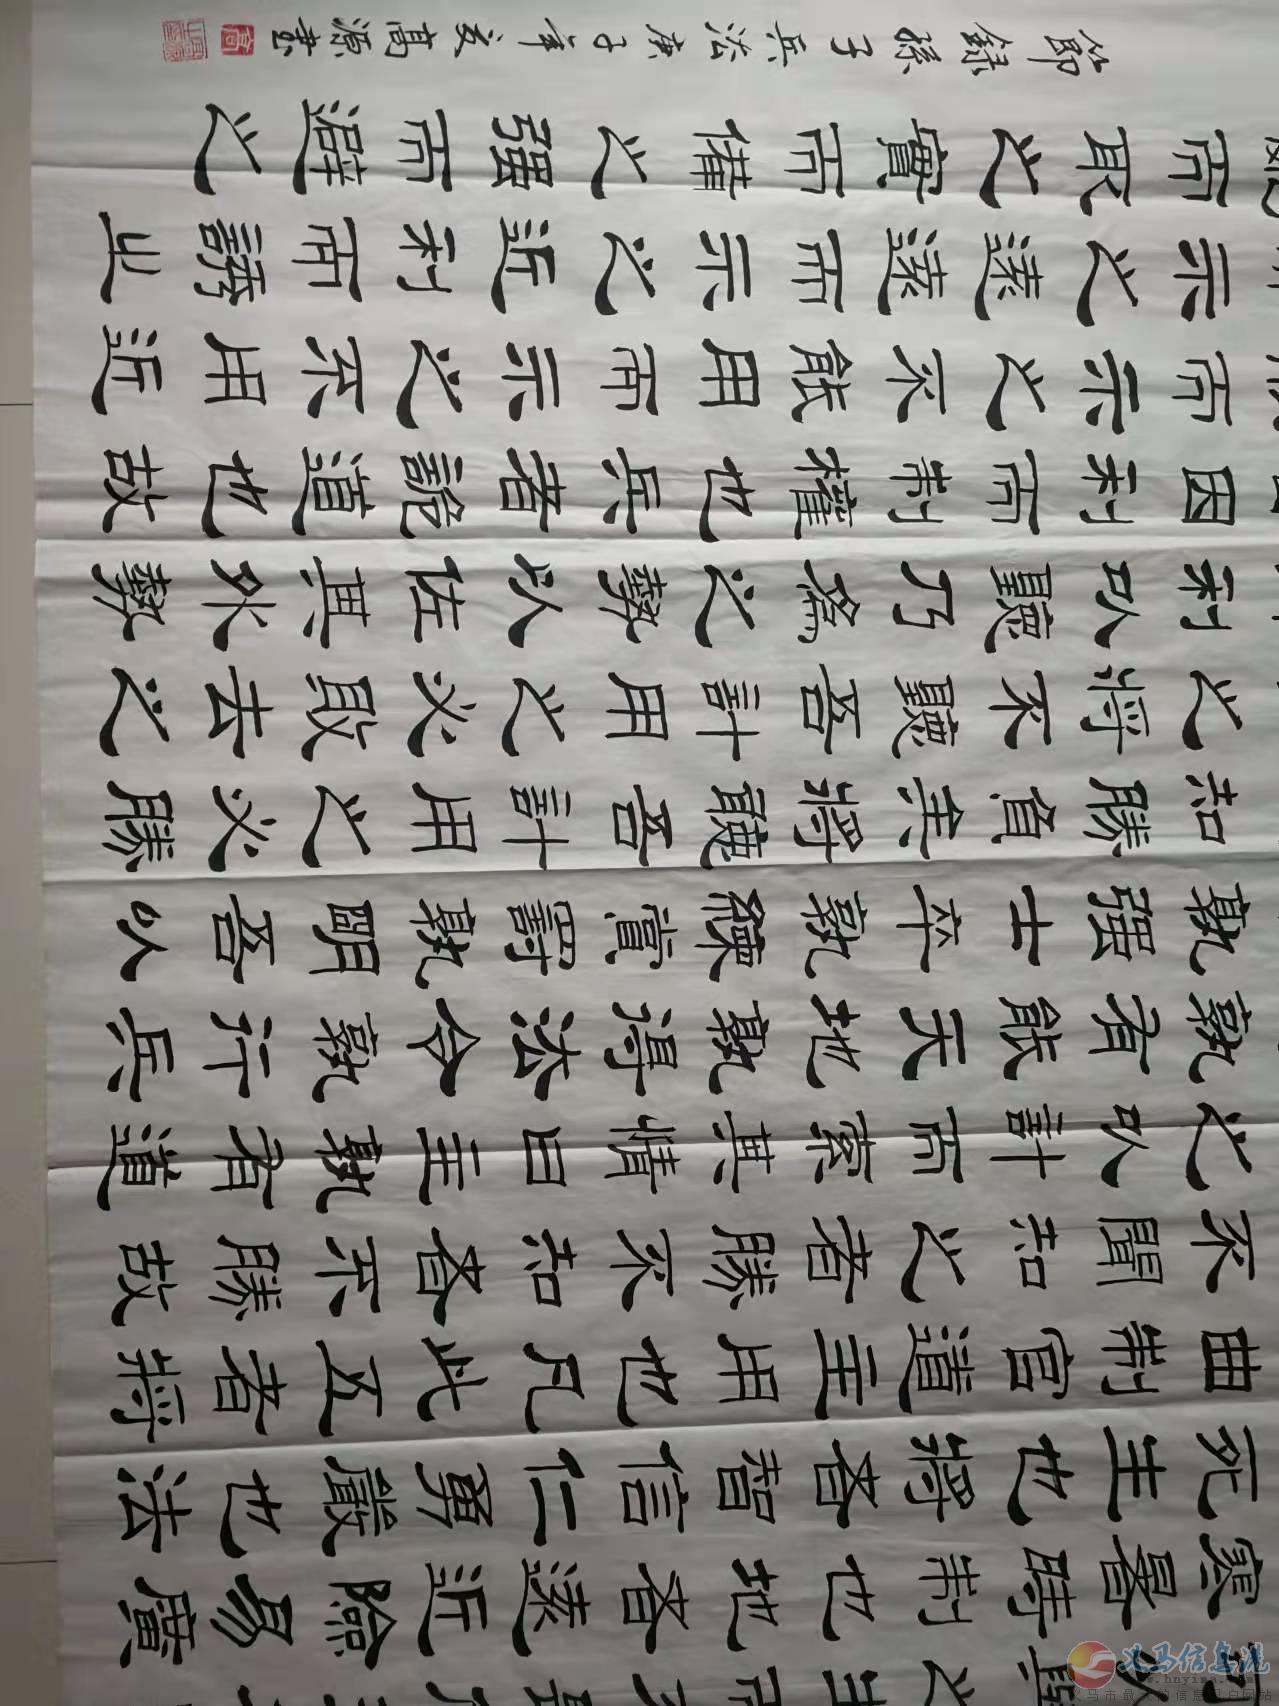 寒暑時制也地者遠近險易廣
死生也將者智信仁勇嚴也法
曲制官道主用也凡此五者將
不聞知之者勝不知者不勝故
之以計而索其情曰主孰有道
孰有能天地孰得法令孰行兵
孰強士卒孰練賞罰孰明吾以
知勝負矣將聽吾計用之必勝
之將不聽吾計用之必敗去之
利以聽乃為之勢以佐其外勢
因利而制權也兵者詭道也故
而示之不能用而示之不用近
而示之遠遠而示之近利而誘之
而取之實而備之強而避之
節錄孫子兵法庚子年夏高源書
义马信息港